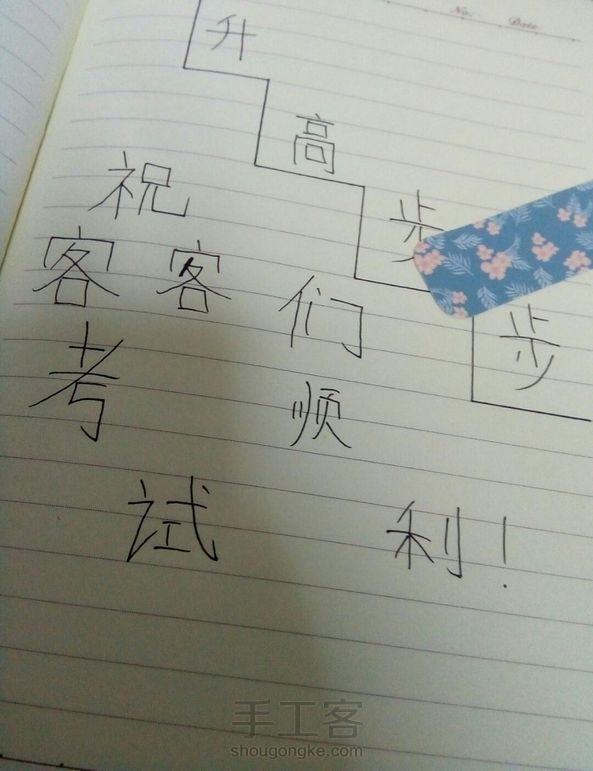 No. Date
升
高
步
步
祝
客客们
考 顺
试 利！
手工客
shougongke.com